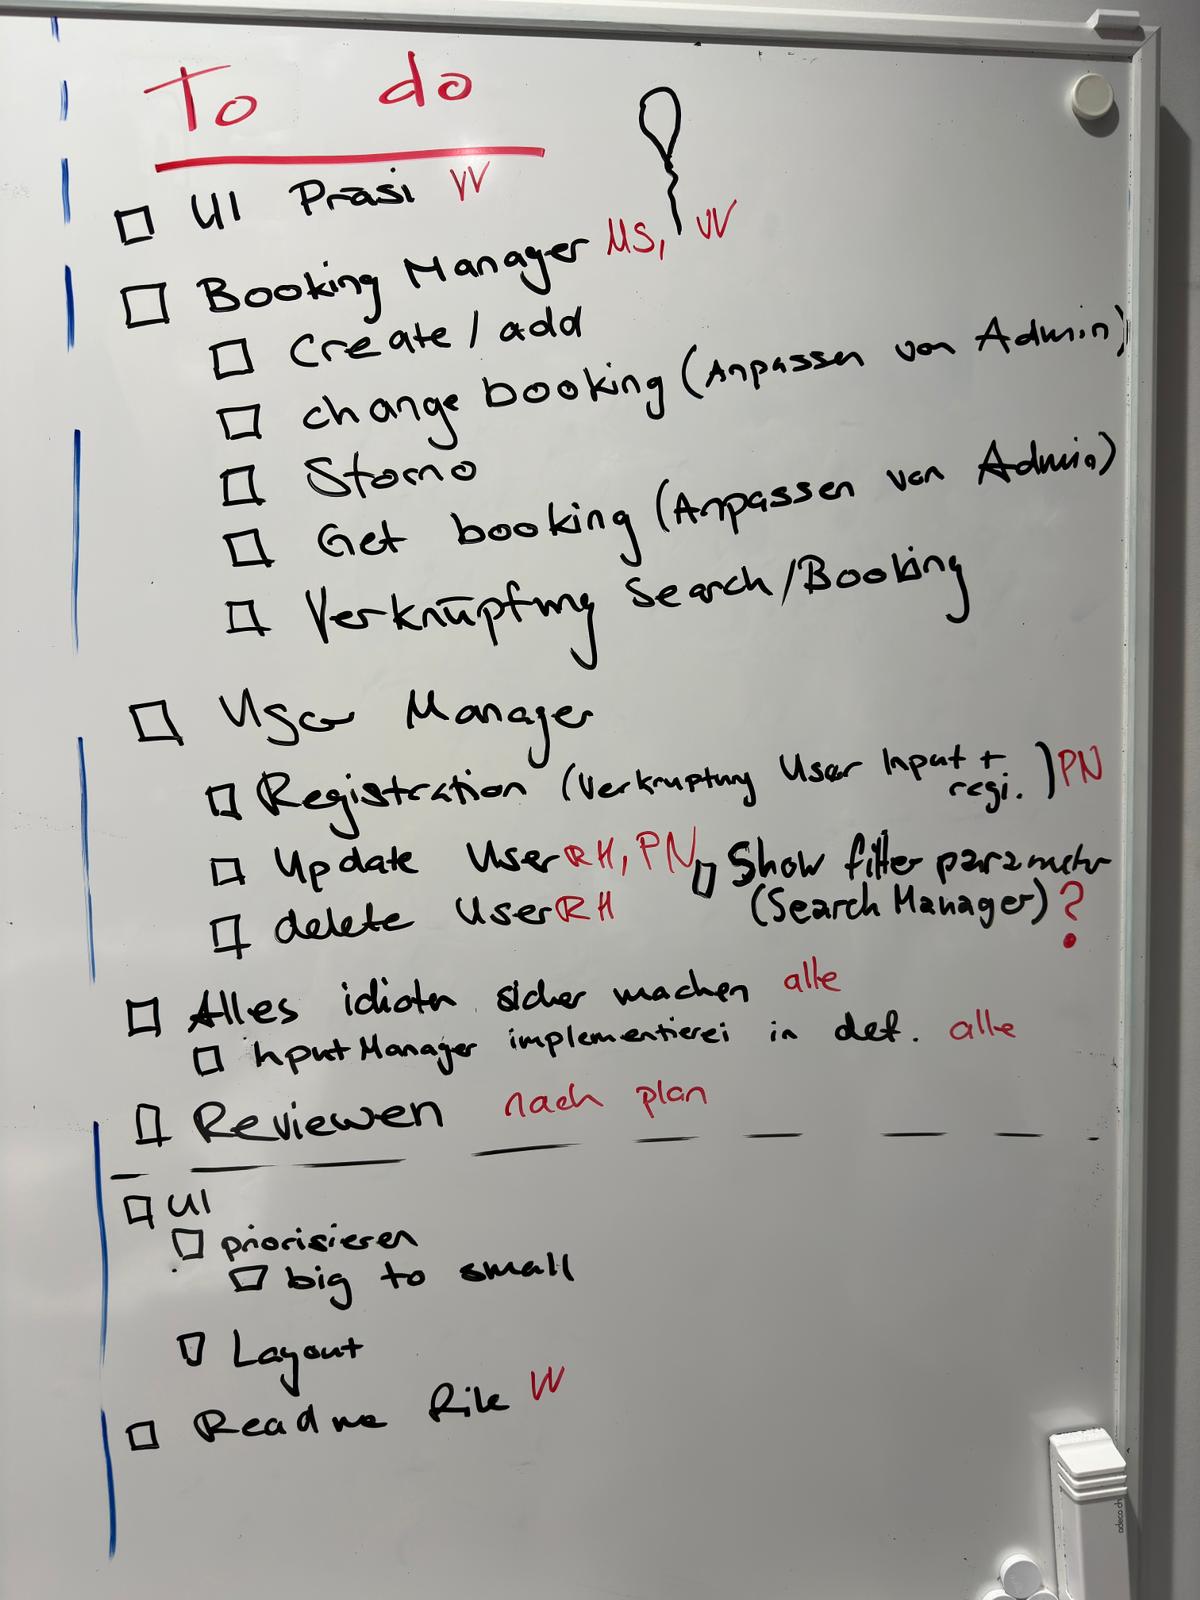 To do
UI Präsi VV
Booking Manager MS, VV
Create / add
change booking (Anpassen von Admin)
Storno
Get booking (Anpassen von Admin)
Verknüpfung Search/Booking
User Manager
Registration (Verknüpfung User Input + regi.) PN
Update User RH, PN
Show filter parameter
delete User RH
(Search Manager) ?
Alles idioten sicher machen alle
Input Manager implementierei in def. alle
Reviewen nach plan
UI
priorisieren
big to small
Layout
Readme File VV
adeco.ch